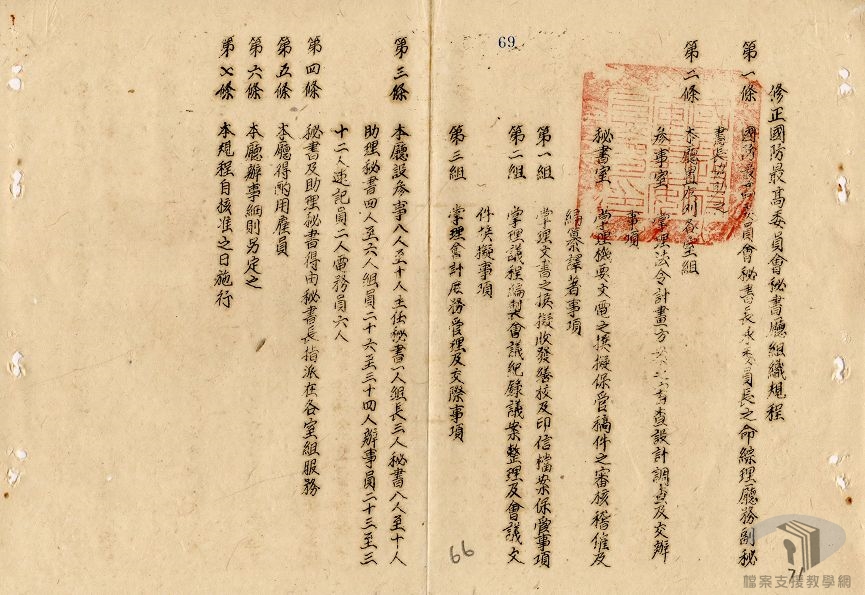 69
修正國防最高委員會秘書廳組織規程
第一條 國防最高委員會秘書長承委員長之命綜理廳務副秘
書長協助之
第二條 本廳置左列各室組
參事室 掌理法令計畫方案之審查設計調查及交辦
事項
秘書室 掌理機要文電之撰擬保管稿件之審核稽催及
編纂譯著事項
第一組 掌理文書之撰擬收發繕校及印信檔案保管事項
第二組 掌理議程編製會議紀錄議案整理及會議文
件撰擬事項
第三組 掌理會計庶務管理及交際事項
第三條 本廳設參事八人至十人主任秘書一人組長三人秘書八人至十人
助理秘書四人至六人組員二十六至三十四人辦事員二十三至三
十二人速記員二人電務員六人
第四條 秘書及助理秘書得由秘書長指派在各室組服務
第五條 本廳得酌用雇員
第六條 本廳辦事細則另定之
第七條 本規程自核准之日施行
66
71
檔案支援教學網